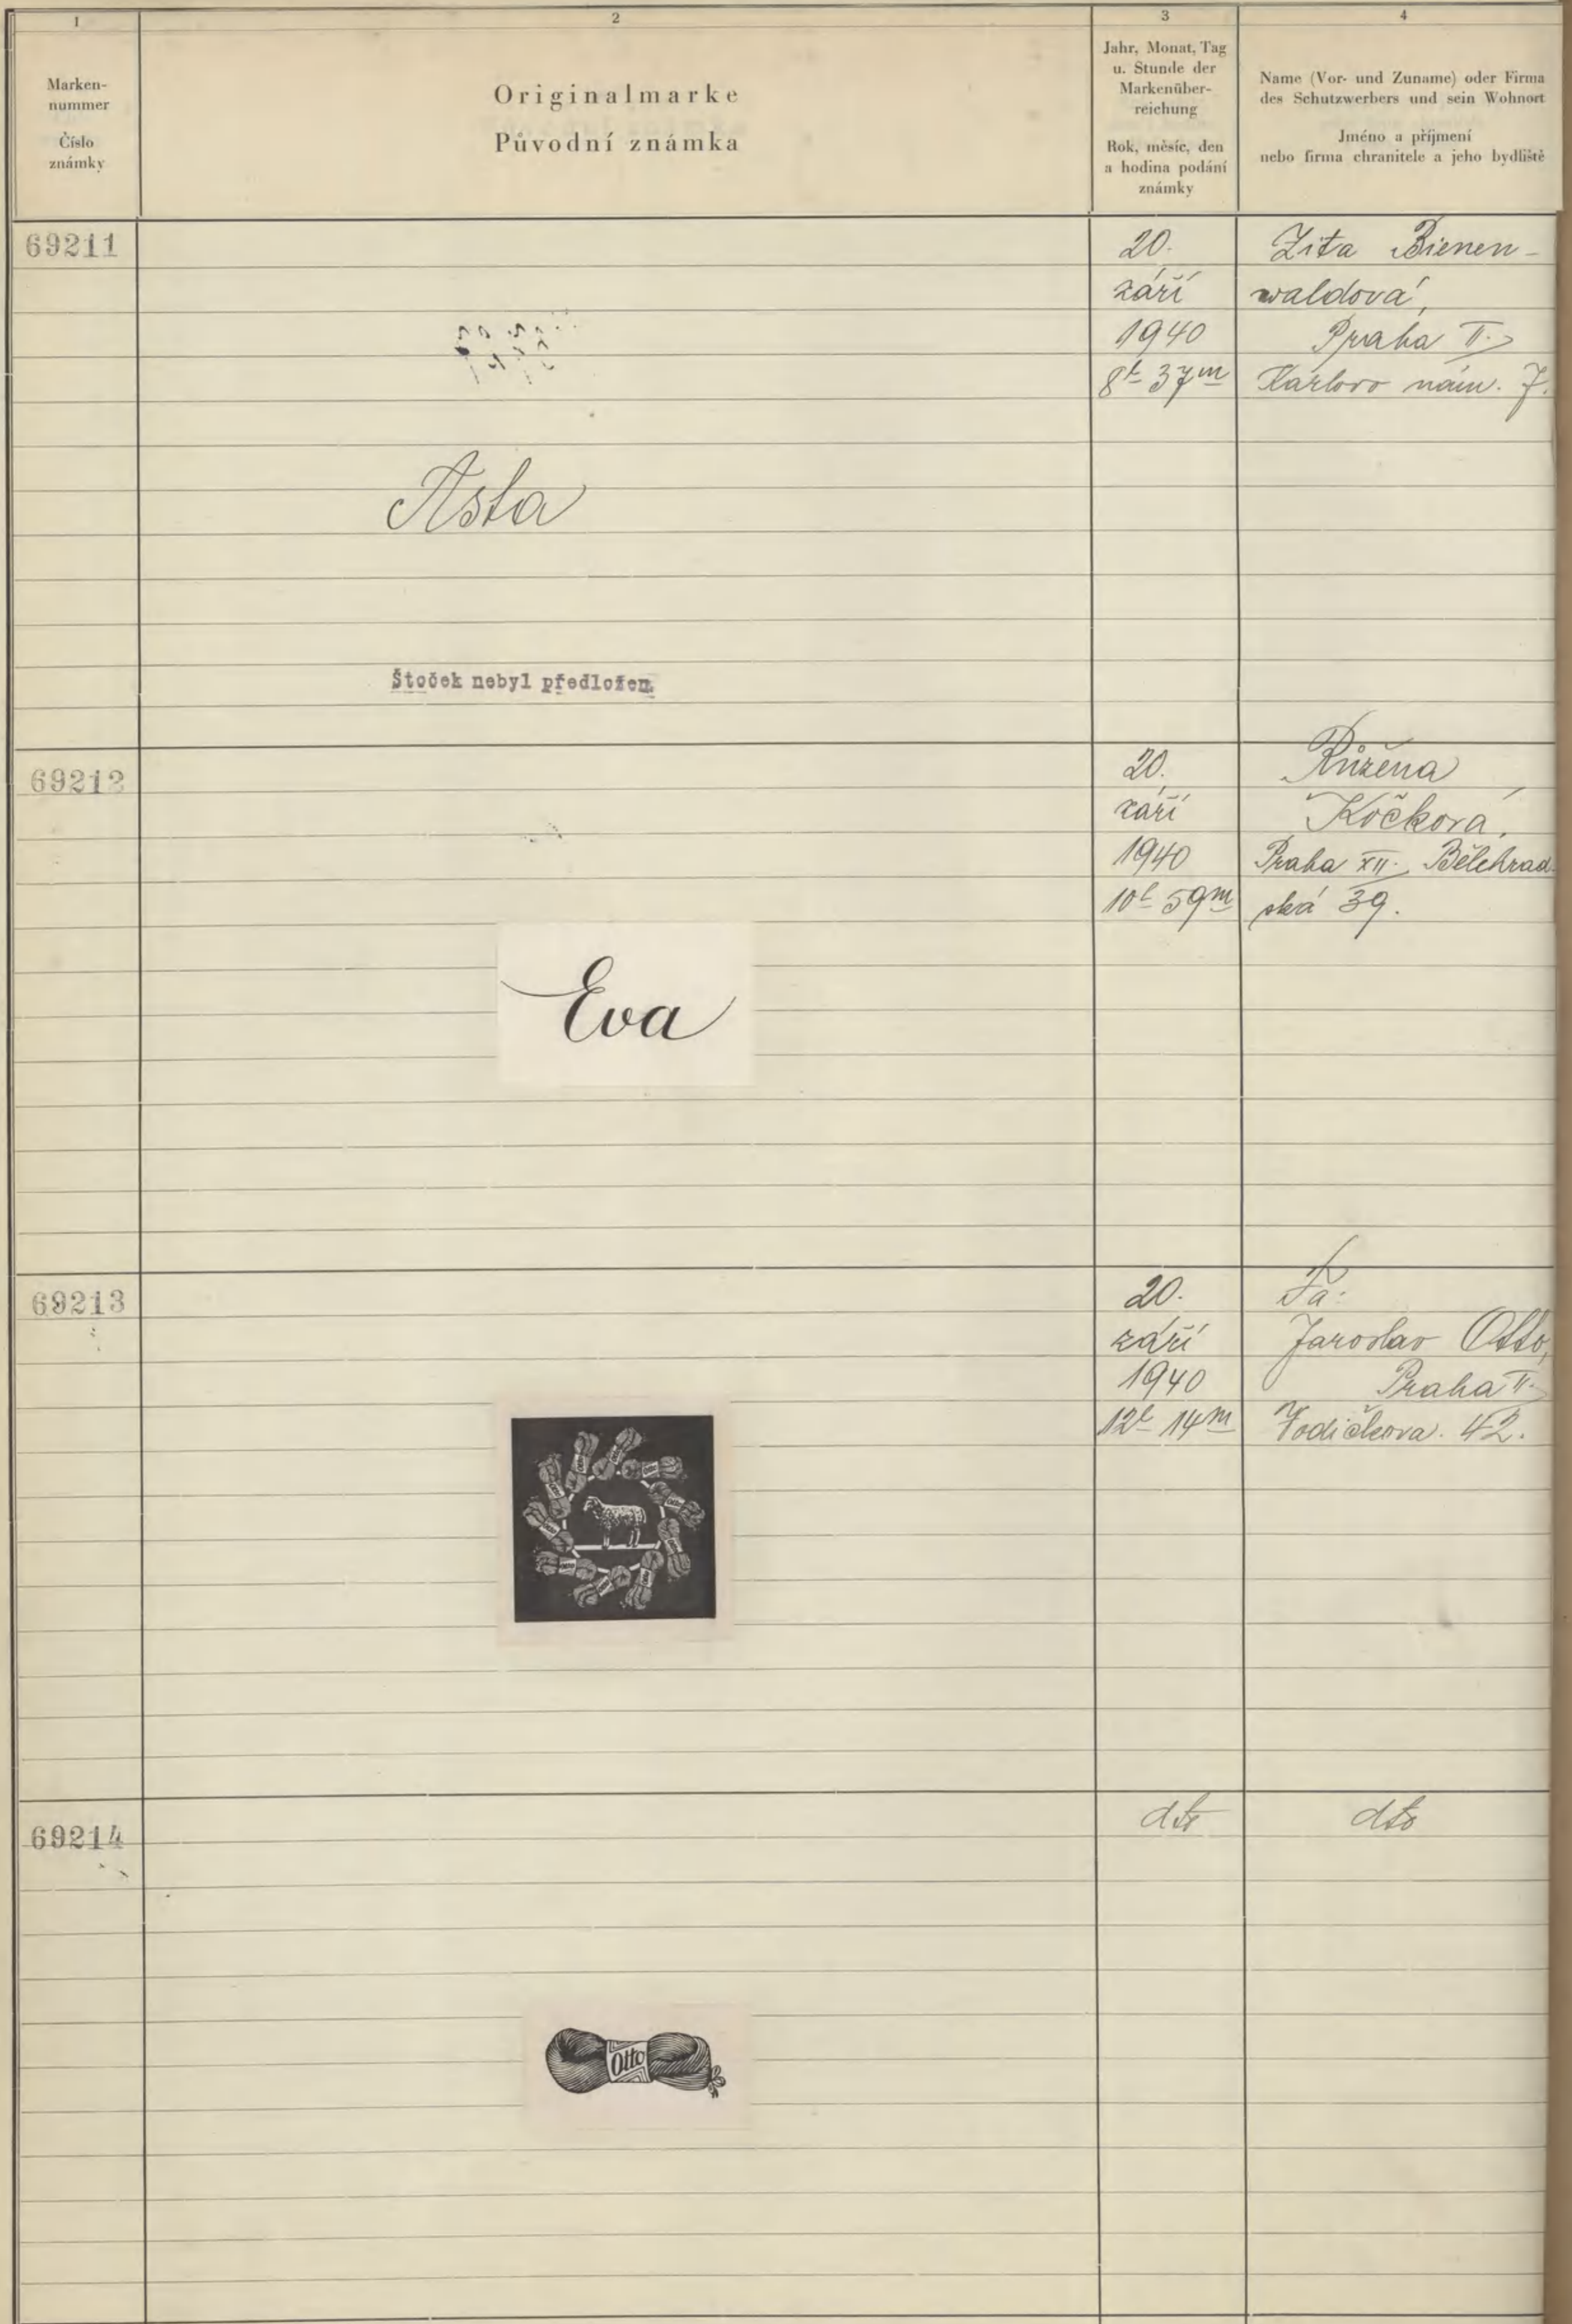 1
Marken-
nummer
Číslo
známky
2
Originalmarke
Původní známka
3
Jahr, Monat, Tag
u. Stunde der
Markenüber-
reichung
Rok, měsíc, den
a hodina podání
známky
4
Name (Vor- und Zuname) oder Firma
des Schutzwerbers und sein Wohnort
Jméno a příjmení
nebo firma chranitele a jeho bydliště
69211
Asta
Štoček nebyl předložen.
20.
září
1940
8h 37m
Zita Bienen-
waldová,
Praha II.
Karlovo nám. 7.
69212
Eva
20.
září
1940
10h 59m
Růžena
Kočková,
Praha XII. Bělehrad-
ská 39.
69213
20.
září
1940
12h 14m
Fa:
Jaroslav Otto,
Praha II.
Vodičkova 42.
69214
Otto
dto
dto